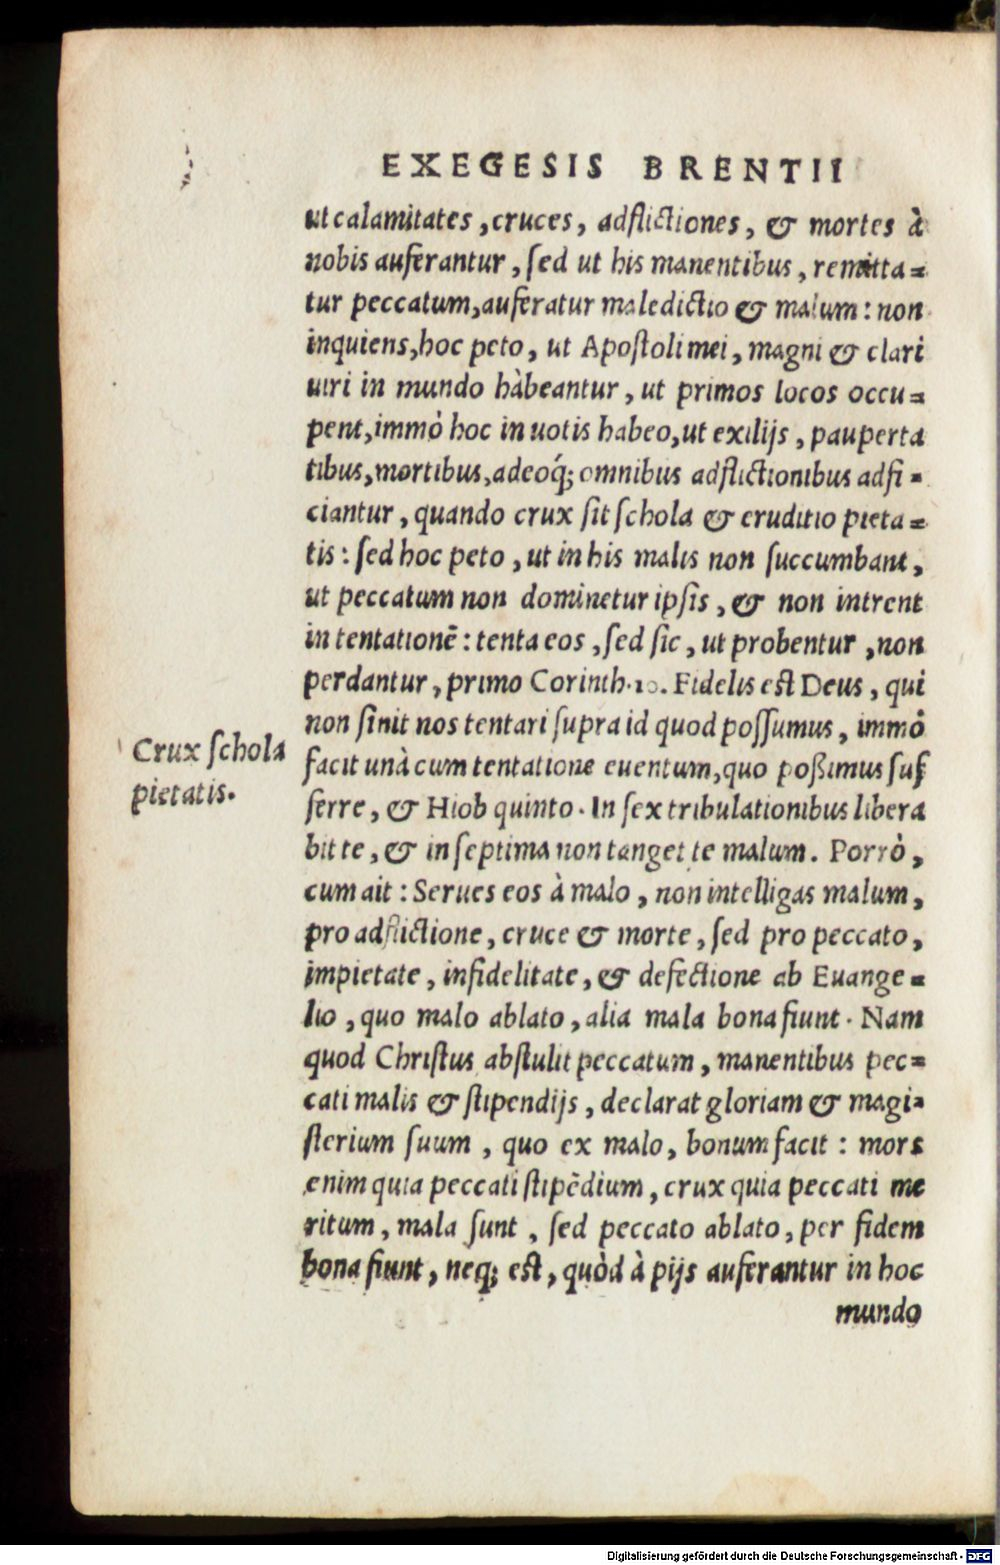 EXEGESIS BRENTII
ut calamitates, cruces, adflictiones, & mortes à
nobis auferantur, ſed ut his manentibus, remitta=
tur peccatum, auferatur maledictio & malum: non
inquiens, hoc peto, ut Apoſtoli mei, magni & clari
uiri in mundo hàbeantur, ut primos locos occu=
pent, immò hoc in uotis habeo, ut exilijs, pauperta
tibus, mortibus, adeoq́; omnibus adflictionibus adfi=
ciantur, quando crux ſit ſchola & eruditio pieta=
tis: ſed hoc peto, ut in his malis non ſuccumbant,
ut peccatum non dominetur ipſis, & non intrent
in tentationē: tenta eos, ſed ſic, ut probentur, non
perdantur, primo Corinth. 10. Fidelis eſt Deus, qui
non ſinit nos tentari ſupra id quod poſſumus, immò
Crux ſchola
pietatis.
facit unà cum tentatione euentum, quo poßimus ſuf
ferre, & Hiob quinto. In ſex tribulationibus libera
bit te, & in ſeptima non tanget te malum. Porrò,
cum ait: Serues eos à malo, non intelligas malum,
pro adflictione, cruce & morte, ſed pro peccato,
impietate, infidelitate, & defectione ab Euange=
lio, quo malo ablato, alia mala bona fiunt. Nam
quod Chriſtus abſtulit peccatum, manentibus pec=
cati malis & ſtipendijs, declarat gloriam & magi=
ſterium ſuum, quo ex malo, bonum facit: mors
enim quia peccati ſtipēdium, crux quia peccati me
ritum, mala ſunt, ſed peccato ablato, per fidem
bona fiunt, neq; eſt, quòd à pijs auferantur in hoc
mundo
Digitalisierung gefördert durch die Deutsche Forschungsgemeinschaft - DFG